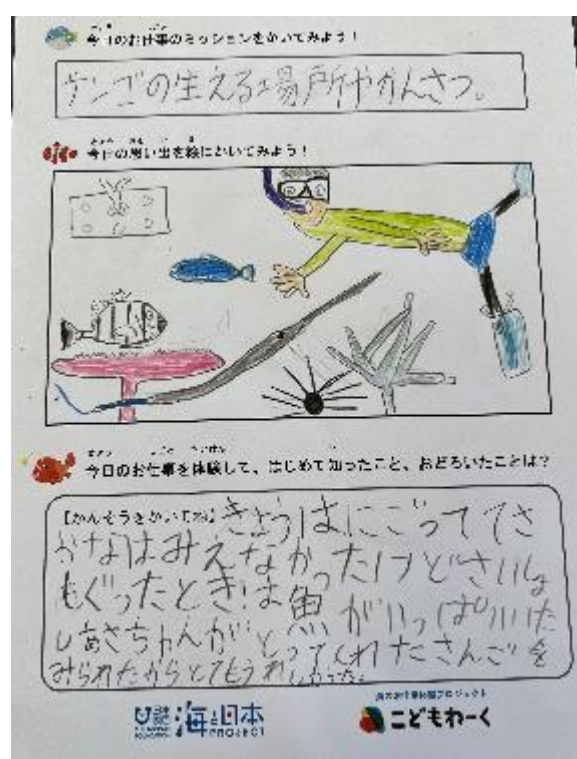 今日のお仕事のミッションをかいてみよう！
サンゴの生える場所やかんさつ。
今日の思い出を絵にかいてみよう！
今日のお仕事を体験して、はじめて知ったこと、おどろいたことは？
【かんそうをかいてね】きょうはにごっててさ
かなはみえなかったけどさいしょ
もぐったときは魚がいっぱいいた
しあさちゃんがとってくれたさんごを
みられたからとてもうれしかった。
海と日本
PROJECT
海のお仕事体験プロジェクト
こどもわーく